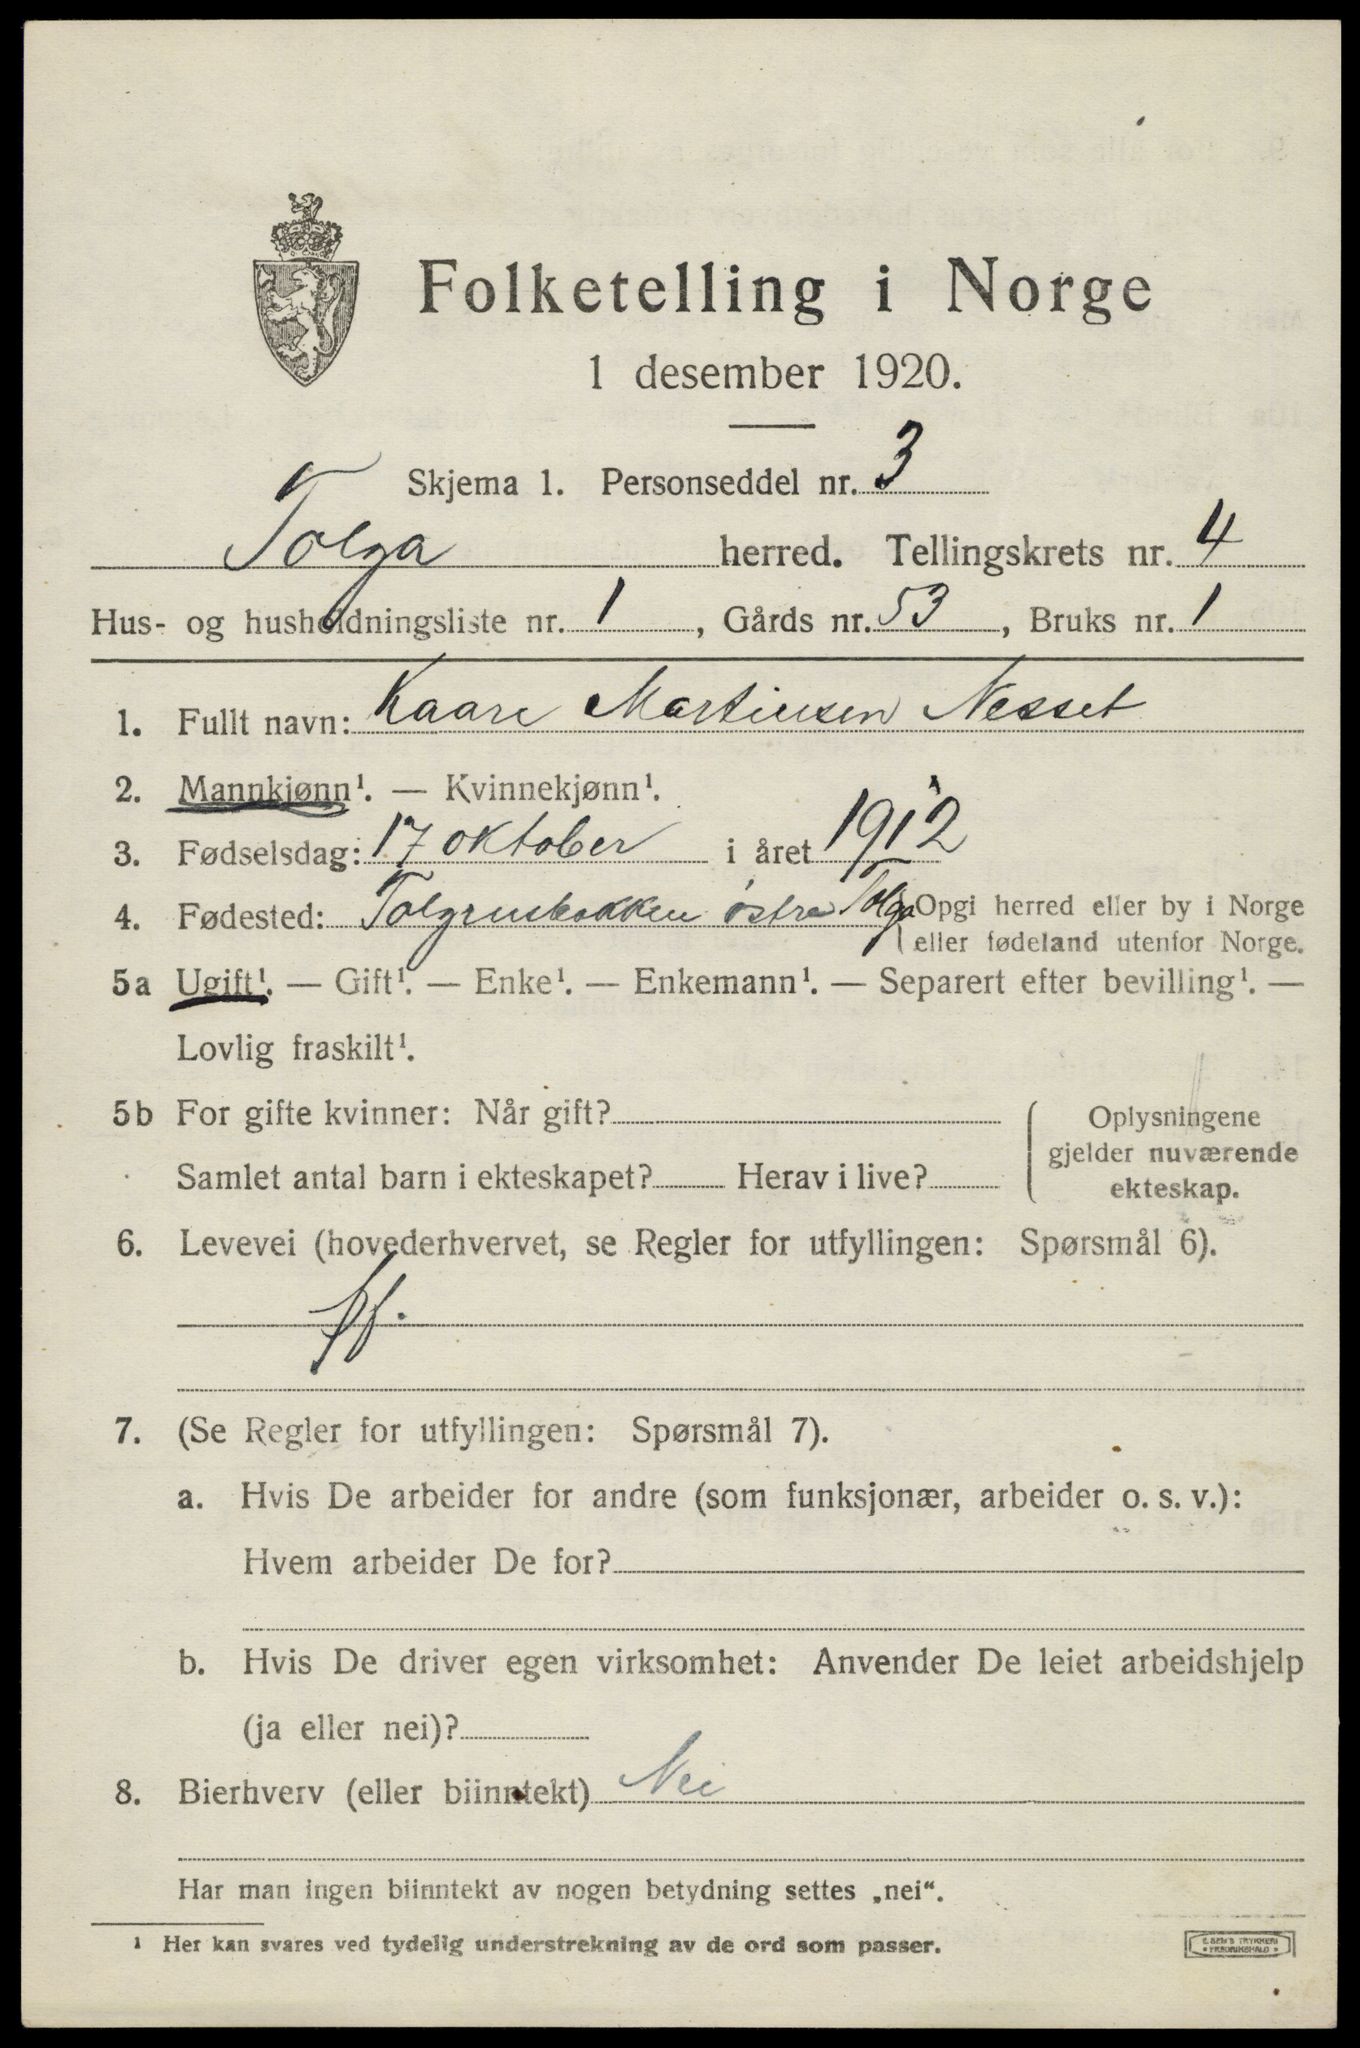 Folketelling i Norge
1 desember 1920.
Skjema 1. Personseddel nr. 3
Tolga herred. Tellingskrets nr. 4
Hus- og husholdningsliste nr. 1, Gårds nr. 53, Bruks nr. 1
1. Fullt navn: Kaare Martinsen Nesset
2. Mannkjønn¹. — Kvinnekjønn¹.
3. Fødselsdag: 17 oktober i året 1912
4. Fødested: østre Tolga Opgi herred eller by i Norge
eller fødeland utenfor Norge.
5a Ugift¹. — Gift¹. — Enke¹. — Enkemann¹. — Separert efter bevilling¹. —
Lovlig fraskilt¹.
5b For gifte kvinner: Når gift?
Samlet antal barn i ekteskapet? Herav i live?
Oplysningene
gjelder nuværende
ekteskap.
6. Levevei (hovederhvervet, se Regler for utfyllingen: Spørsmål 6).
7. (Se Regler for utfyllingen: Spørsmål 7).
a. Hvis De arbeider for andre (som funksjonær, arbeider o. s. v.):
Hvem arbeider De for?
b. Hvis De driver egen virksomhet: Anvender De leiet arbeidshjelp
(ja eller nei)?
8. Bierhverv (eller biinntekt) Nei
Har man ingen biinntekt av nogen betydning settes „nei".
¹ Her kan svares ved tydelig understrekning av de ord som passer.